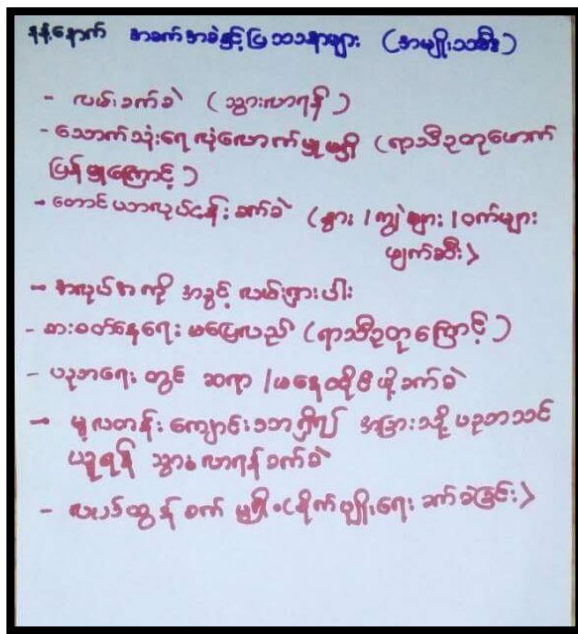 နန့်နောက် အခက်အခဲနှင့်ပြဿနာများ (အမျိုးသမီး)
- လမ်းခက်ခဲ (သွားလာရန်)
- သောက်သုံးရေ လုံလောက်မှုမရှိ (ရာသီဥတုဖောက်
ပြန်မှုကြောင့်)
- တောင်ယာလုပ်ငန်းခက်ခဲ (နွား/ကျွဲများ/ဝက်များ
ဖျက်ဆီး)
- အလုပ်အကိုင် အခွင့်လမ်းရှားပါး
- စားဝတ်နေရေး မပြေလည် (ရာသီဥတုကြောင့်)
- ပညာရေး တွင် ဆရာ/မနေထိုင်ဖို့ခက်ခဲ
- မူလတန်းကျောင်းသာရှိ၍ အခြားသို့ပညာသင်
ယူရန် သွားလာရန်ခက်ခဲ
- လယ်ထွန်စက် မရှိ (စိုက်ပျိုးရေး ခက်ခဲခြင်း)